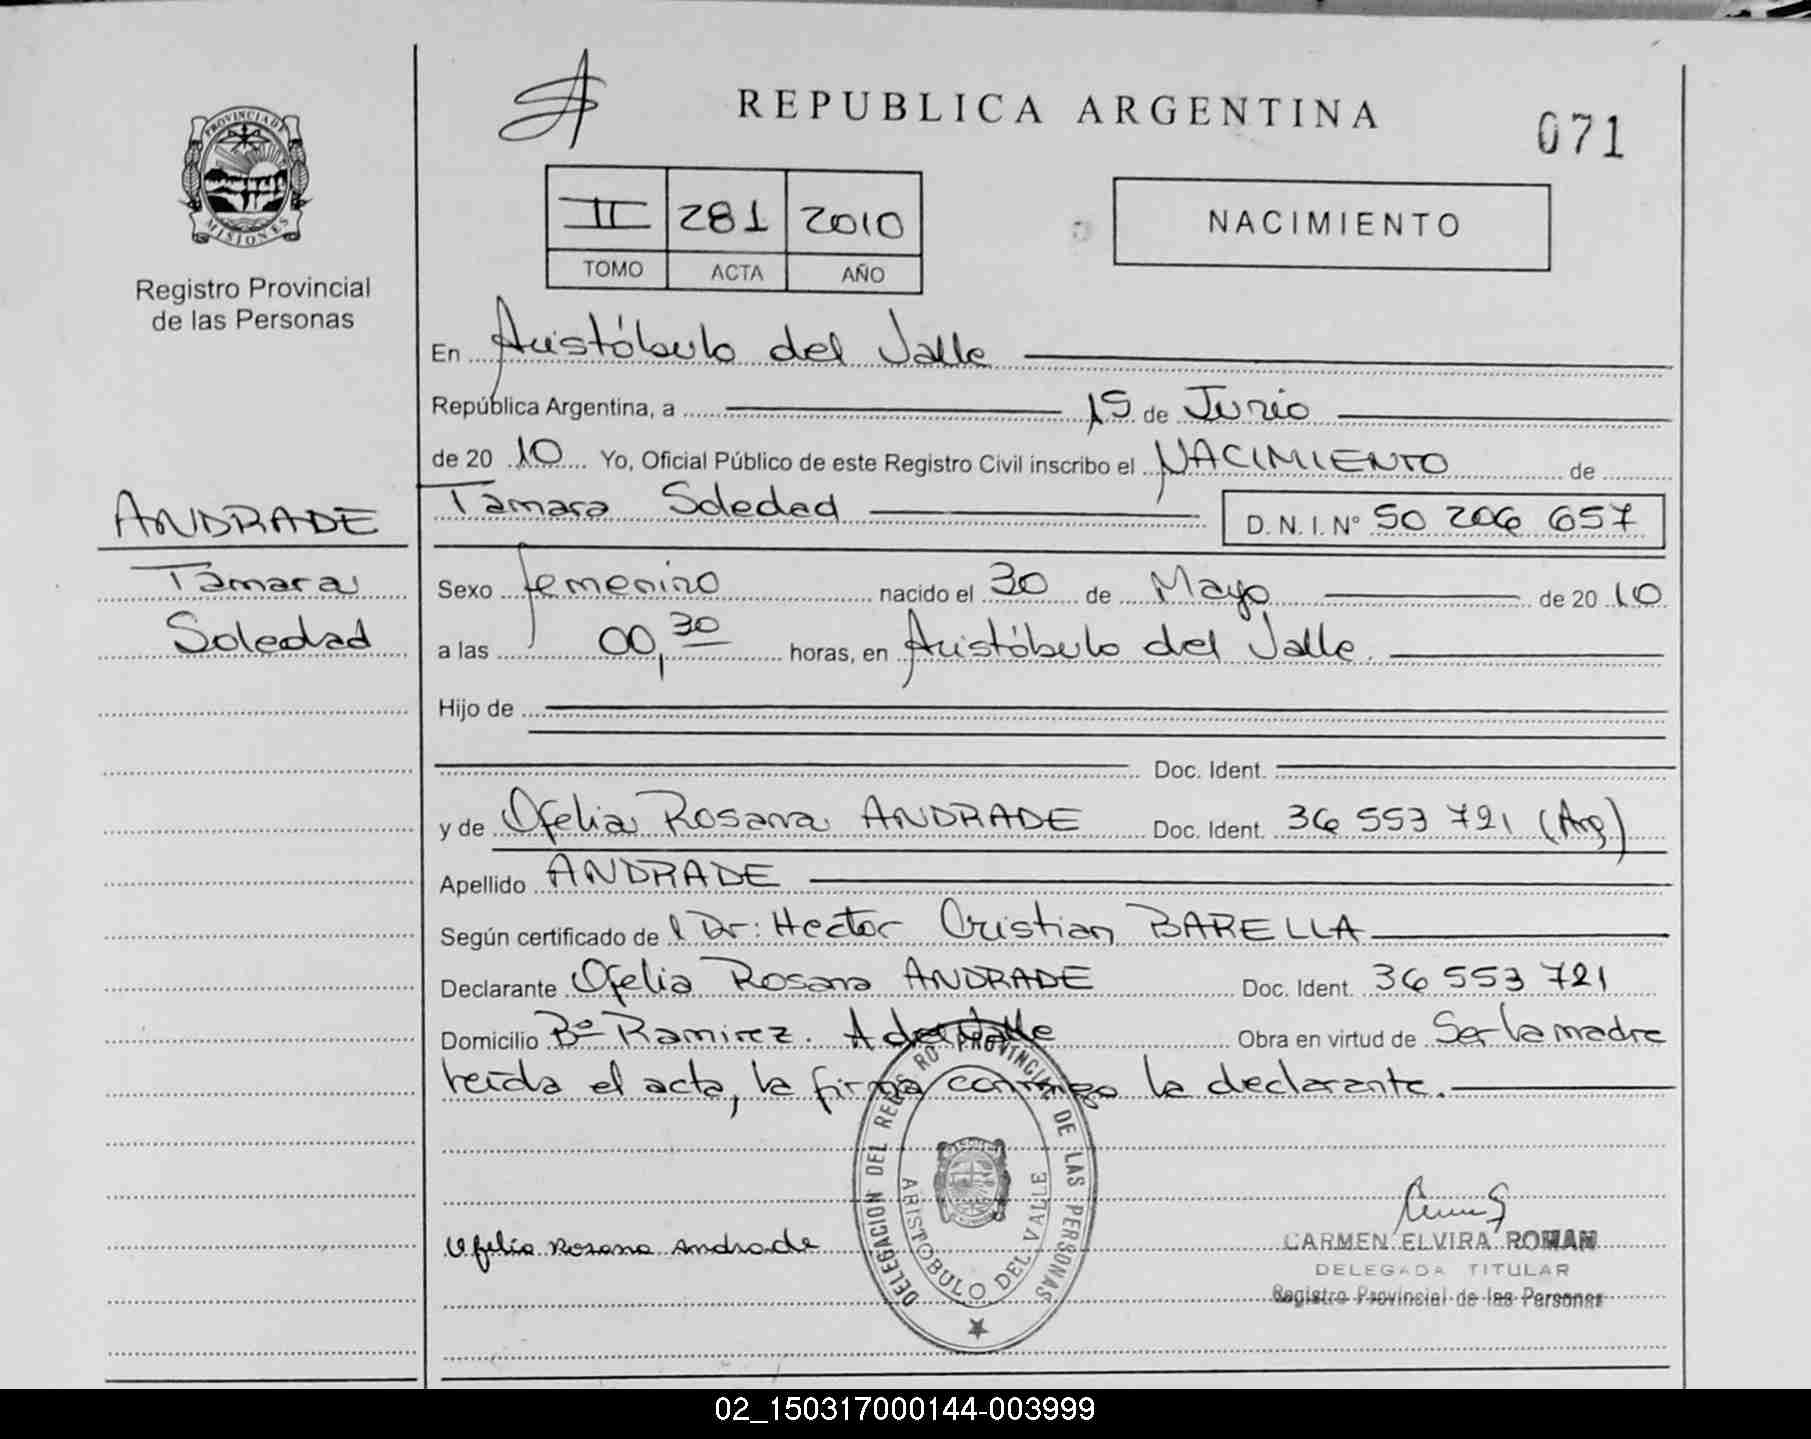 REPUBLICA ARGENTINA
071
PROVINCIA DE
MISIONES
Registro Provincial
de las Personas
II 281 2010
TOMO ACTA AÑO
NACIMIENTO
En Aristóbulo del Valle
República Argentina, a 15 de Junio
de 20 10 Yo, Oficial Público de este Registro Civil inscribo el NACIMIENTO de
Tamara Soledad D. N. I. N° 50 206 657
ANDRADE
Tamara
Soledad
Sexo femenino nacido el 30 de Mayo de 20 10
a las 00,30 horas, en Aristóbulo del Valle.
Hijo de
Doc. Ident.
y de Ofelia Rosana ANDRADE Doc. Ident. 36 553 721 (Arg)
Apellido ANDRADE
Según certificado de l Dr: Hector Cristian BARELLA
Declarante Ofelia Rosana ANDRADE Doc. Ident. 36 553 721
Domicilio Bº Ramirez. A del Valle Obra en virtud de Ser la madre
leída el acta, la firma conmigo la declarante.
DELEGACION DEL REGISTRO PROVINCIAL DE LAS PERSONAS
ARISTOBULO DEL VALLE
Ofelia Rosana Andrade
CARMEN ELVIRA ROMAN
DELEGADA TITULAR
Registro Provincial de las Personas
02_150317000144-003999